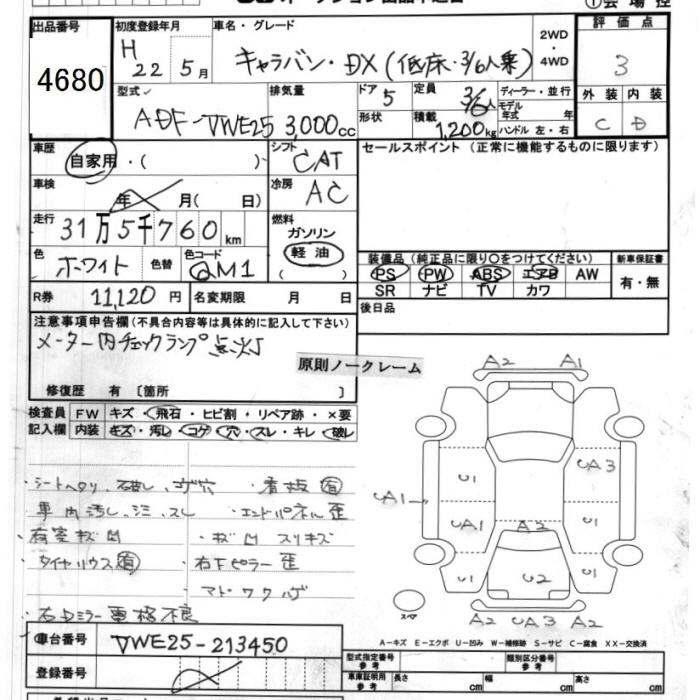 出品番号 初度登録年月 車名・グレード 2WD・4WD 評価点
4680 H 22 5月 キャラバン・DX (低床・3/6人乗) 3
型式 排気量 ドア 5 定員 3/6人 ディーラー・並行 外装 内装
ADF-VWE25 3,000cc 形状 積載 1,200kg モデル年式 年 ハンドル 左・右 C D
車歴 自家用・( ) シフト CAT セールスポイント (正常に機能するものに限ります)
車検 年 月( 日) 冷房 AC
走行 31万5千760km 燃料 ガソリン 軽油
色 ホワイト 色替 色コード QM1
装備品 (純正品に限り○をつけてください) 新車保証書
PS PW ABS エアB AW 有・無
SR ナビ TV カワ
R券 11,120円 名変期限 月 日 後日品
注意事項申告欄 (不具合内容等は具体的に記入して下さい)
メーター内チェックランプ点灯
原則ノークレーム
修復歴 有 〔箇所 〕
検査員 FW キズ・飛石・ヒビ割・リペア跡・×要
記入欄 内装 キズ・汚れ・コゲ・穴・スレ・キレ・破レ
・シートヘタリ、破レ、コゲ穴 ・看板有
・車内汚レ、シミ、スレ ・エンドパネル歪
・荷室キズ凹 ・キズ凹 スリキズ
・タイヤハウス有 ・右下ピラー歪
・マドワクハゲ
・右ミラー電格不良
A2 A1
U1 UA3
UA1 UA1 A2 U2
U1 U2 U1
A2 UA3 A2
スペア
A-キズ E-エクボ U-凹み W-補修跡 S-サビ C-腐食 XX-交換済
車台番号 VWE25-213450
登録番号
型式指定番号 参考 類別区分番号 参考
車庫証明用 参考 長さ cm 幅 cm 高さ cm